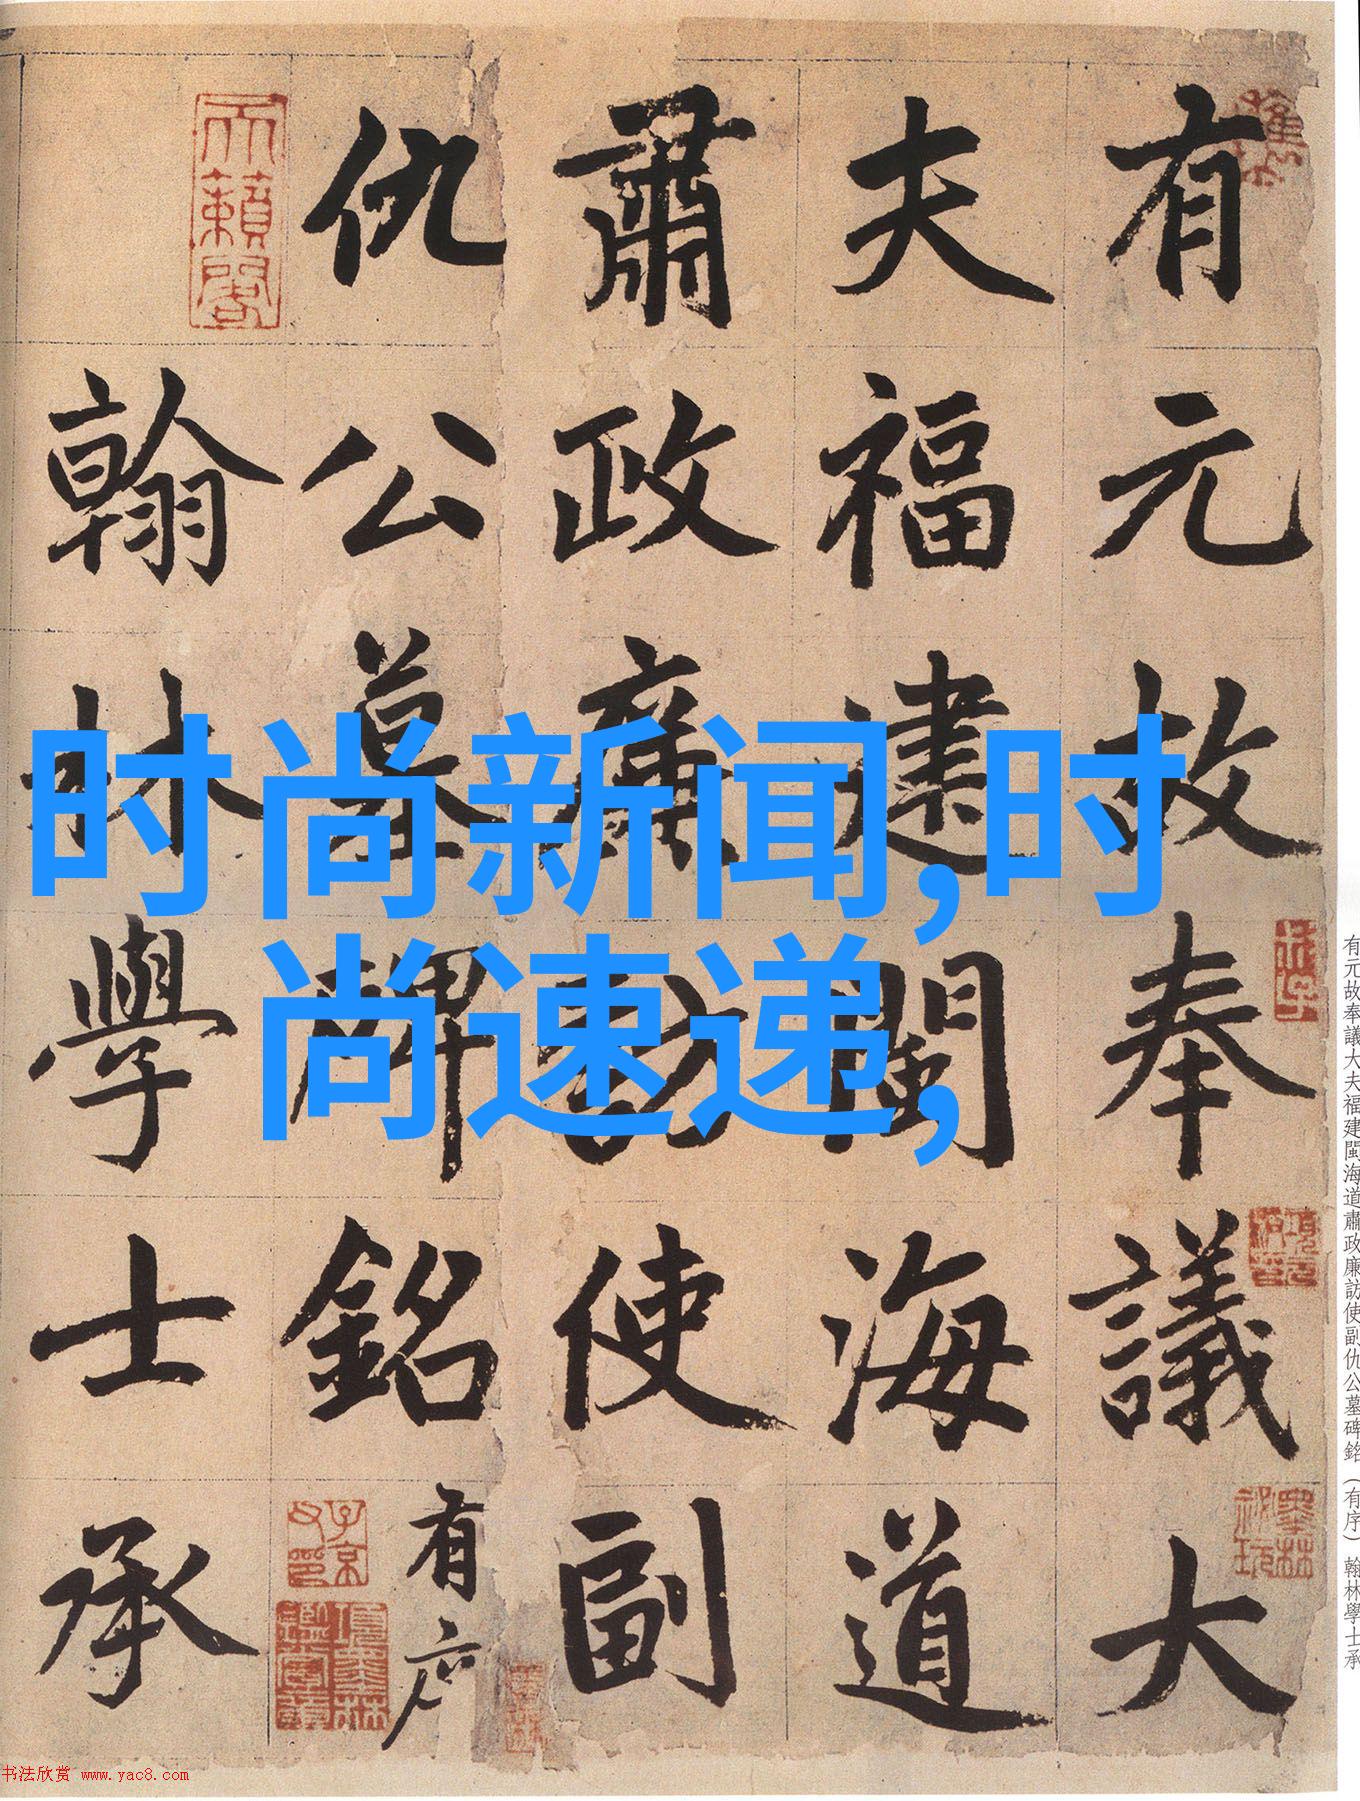 有元故奉議大
夫福建閩海道
肅政廉訪使副
仇公墓碑銘有序
翰林學士承
天籟閣
子京父印
時尚新闻,时
尚速递,
有元故奉議大夫福建閩海道肅政廉訪使副仇公墓碑銘(有序) 翰林學士承
书法欣赏 www.yac8.com